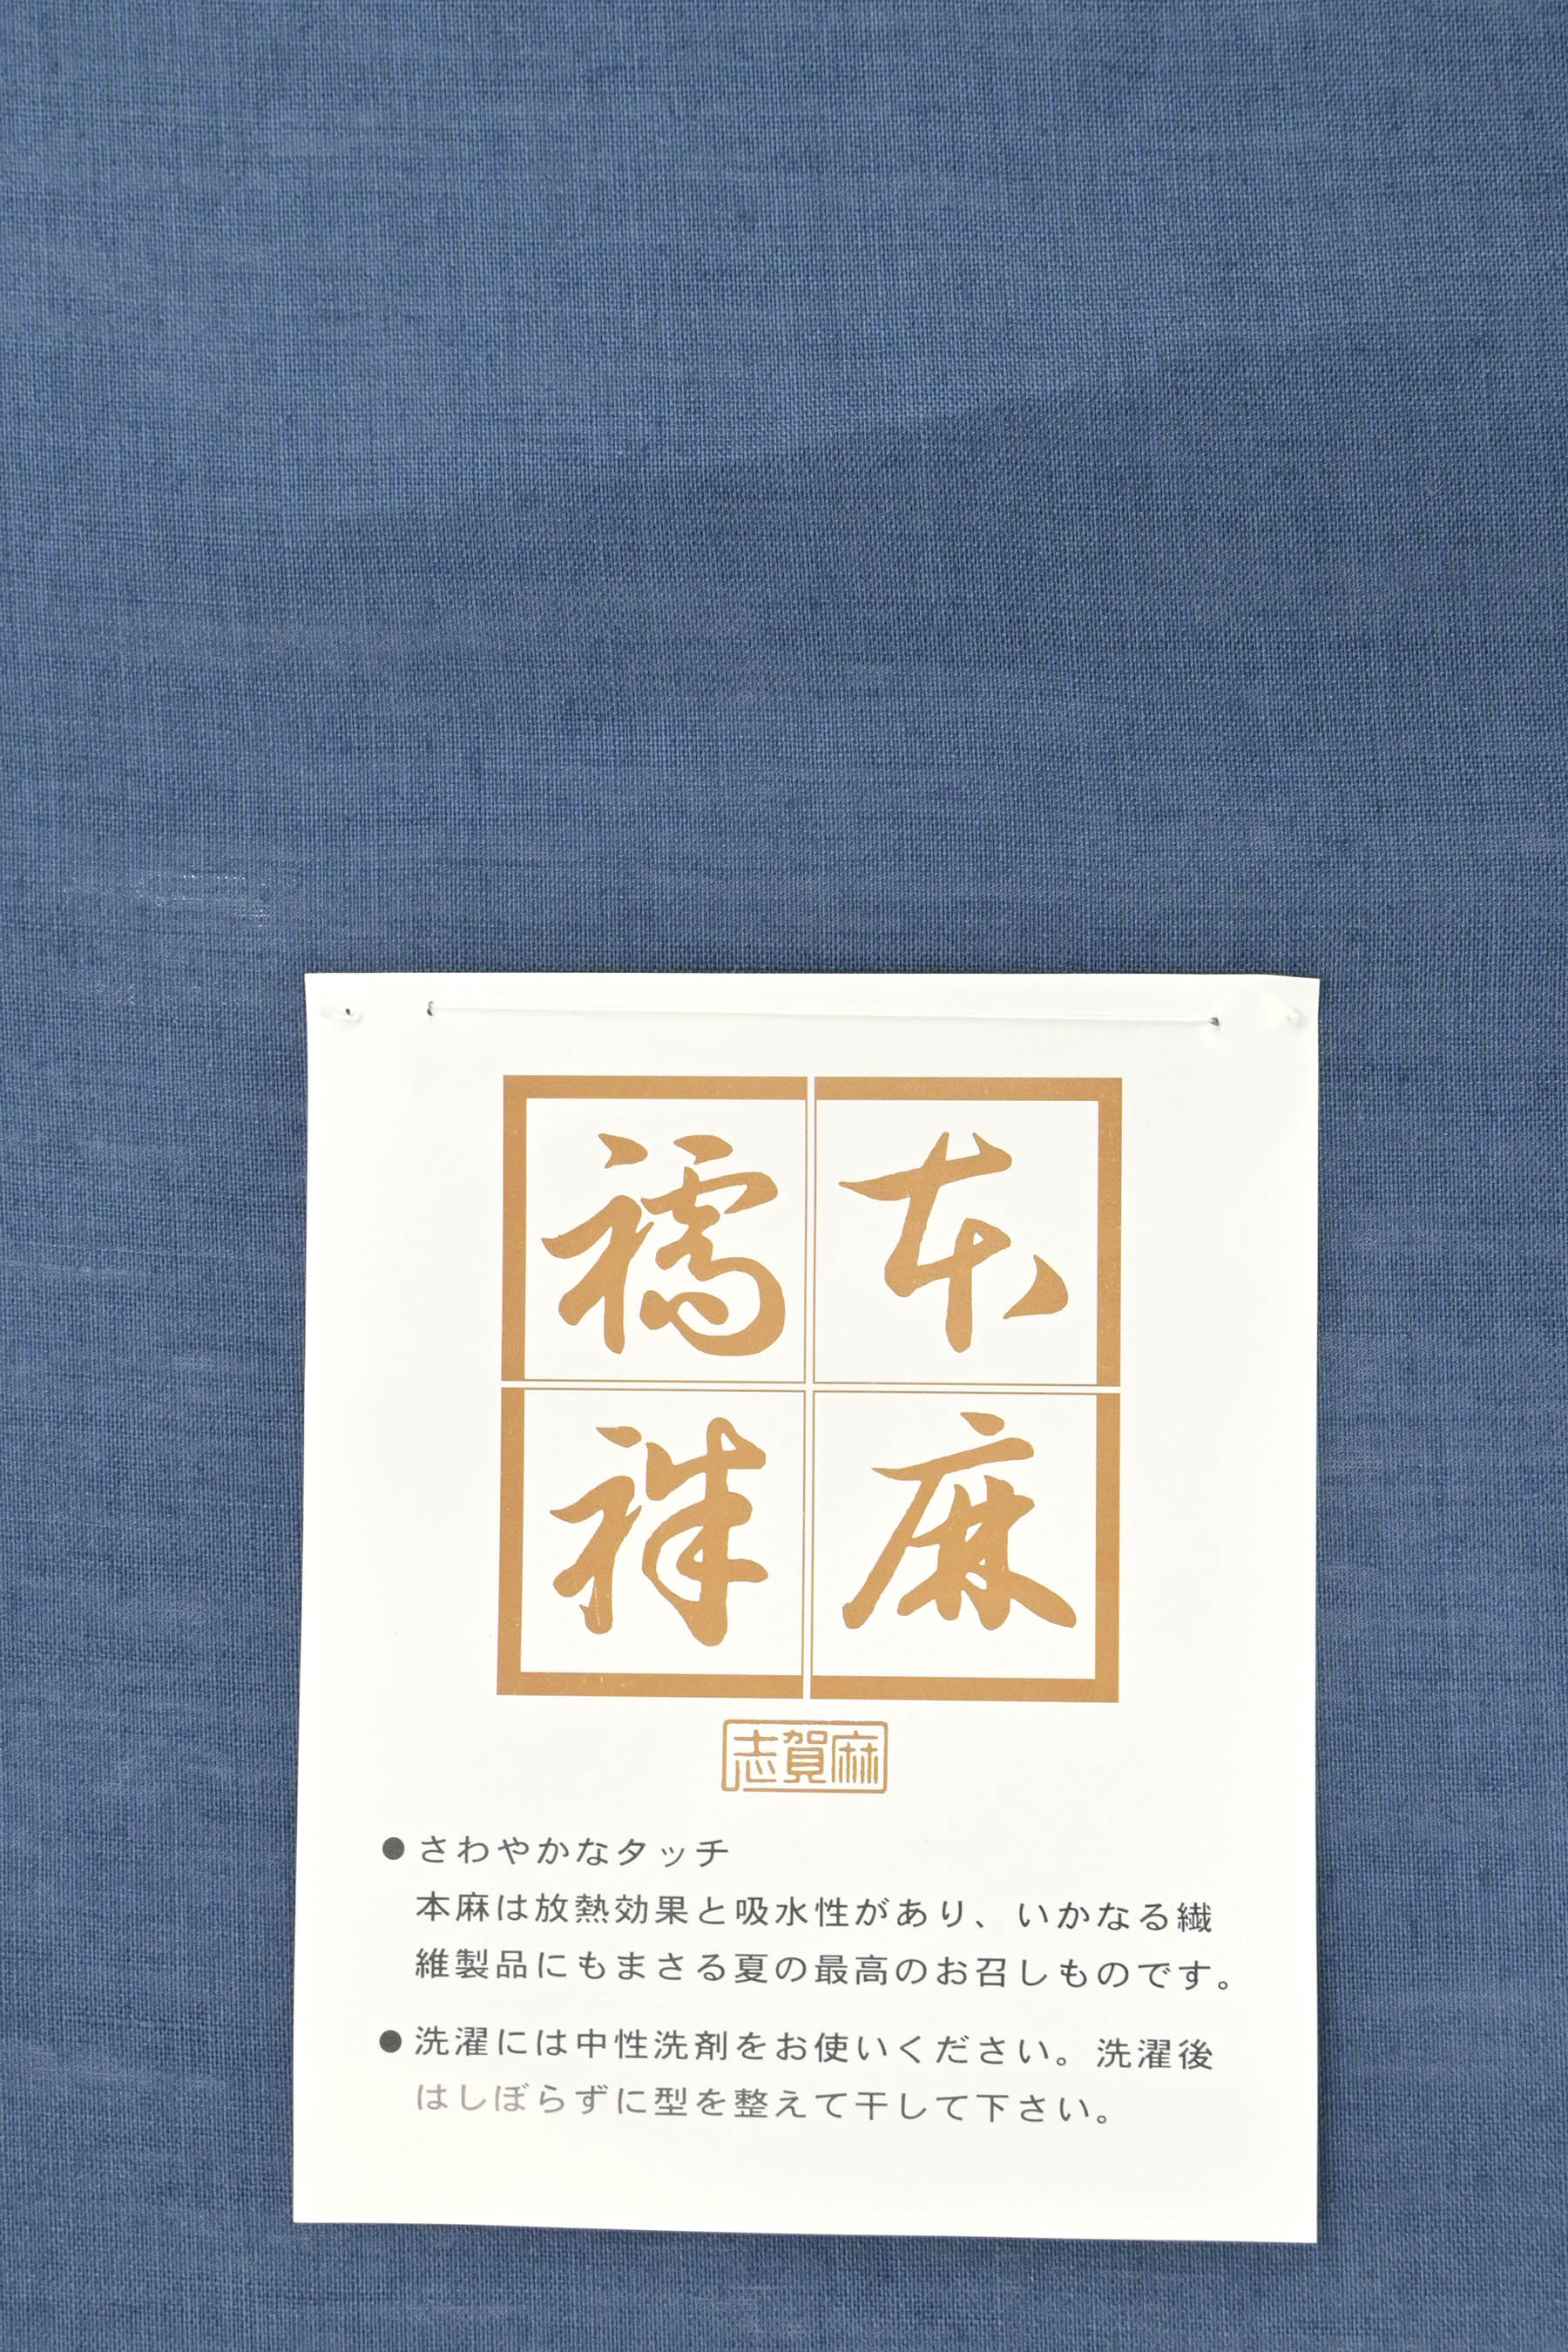 本麻
襦袢
志賀麻
●さわやかなタッチ
本麻は放熱効果と吸水性があり、いかなる繊
維製品にもまさる夏の最高のお召しものです。
●洗濯には中性洗剤をお使いください。洗濯後
はしぼらずに型を整えて干して下さい。